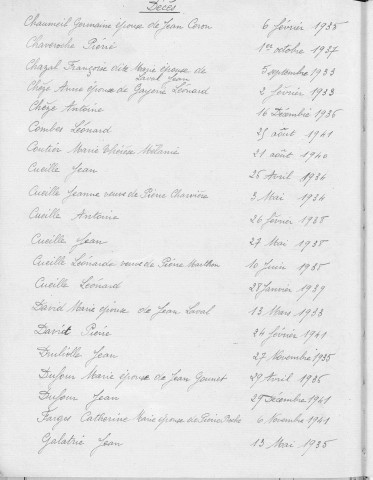 Décès
Chaumeil Germaine épouse de Jean Coron 6 février 1935
Chaveroche Pierre 1er octobre 1937
Chazal Françoise dite Marie épouse de Laval Jean 5 septembre 1933
Chèze Anne épouse de Gayerie Léonard 2 février 1933
Chèze Antoine 16 Décembre 1936
Combes Léonard 25 août 1941
Marie 21 août 1940
Cueille Jean 25 Avril 1934
Cueille Jeanne veuve de Pierre 3 Mai 1934
Cueille Antoine 26 février 1938
Cueille Jean 27 Mai 1935
Cueille Léonarde veuve de Pierre 10 Juin 1935
Cueille Léonard 28 Janvier 1939
David Marie épouse de Jean Laval 13 Mars 1933
David Pierre 24 février 1941
Jean 27 Novembre 1935
Dufour Marie épouse de Jean 29 Avril 1936
Dufour Jean 29 Décembre 1941
Farges Catherine Marie épouse de Pierre 6 Novembre 1941
Galatrie Jean 13 Mai 1935